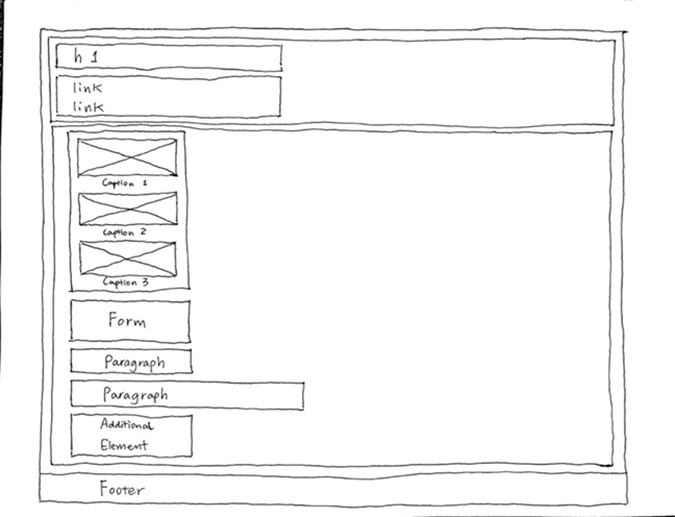 h 1
link
link
Caption 1
Caption 2
Caption 3
Form
Paragraph
Paragraph
Additional
Element
Footer